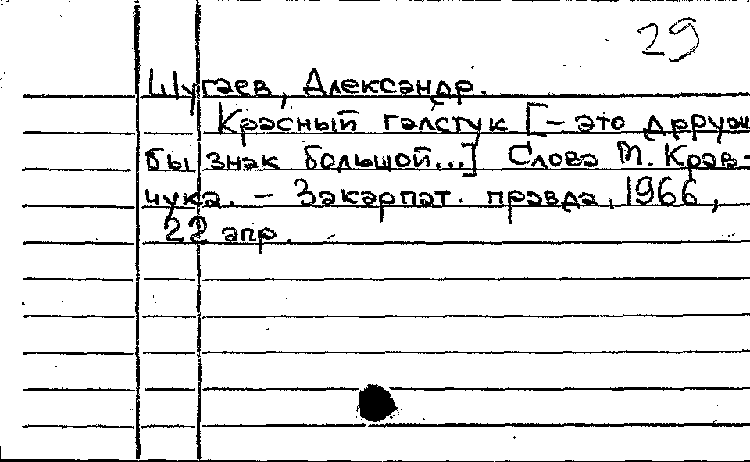 29
Шугаев, Александр.
Красный галстук [- это друж
бы знак большой...] Слова М. Крав-
чука. - Закарпат. правда, 1966,
22 апр.